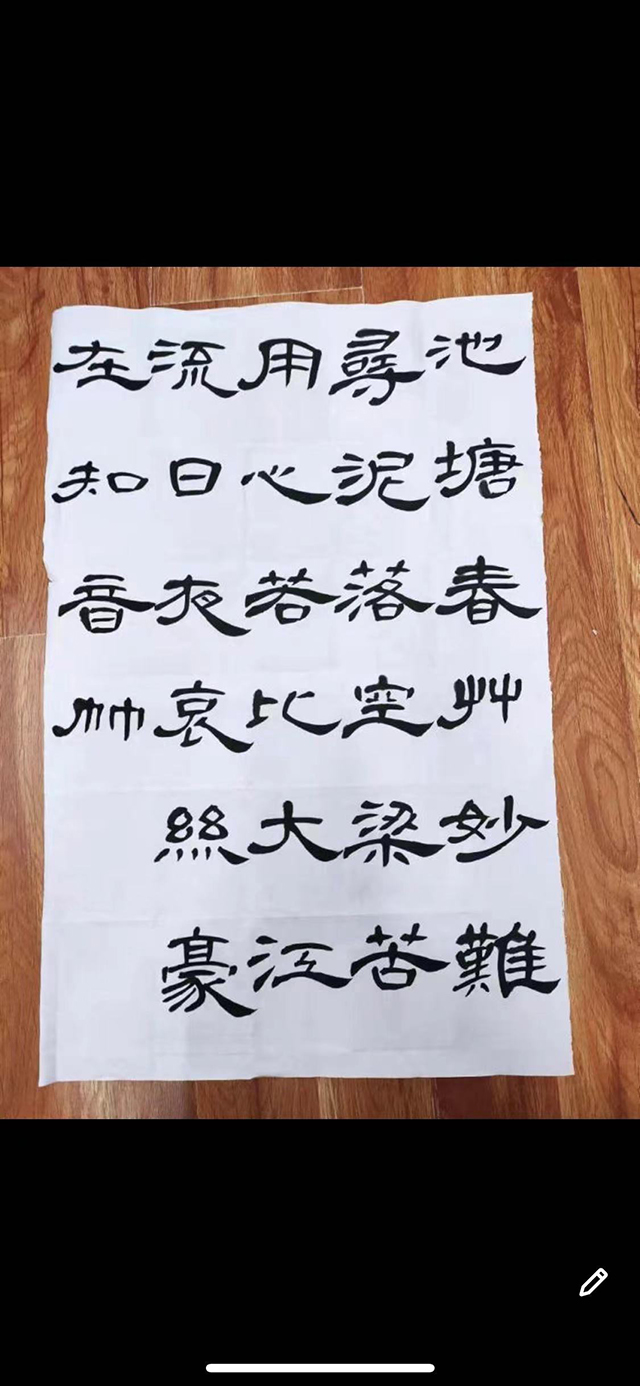 池塘春艸妙難
尋泥落空梁苦
用心若比大江
流日夜哀絲豪
在知音竹